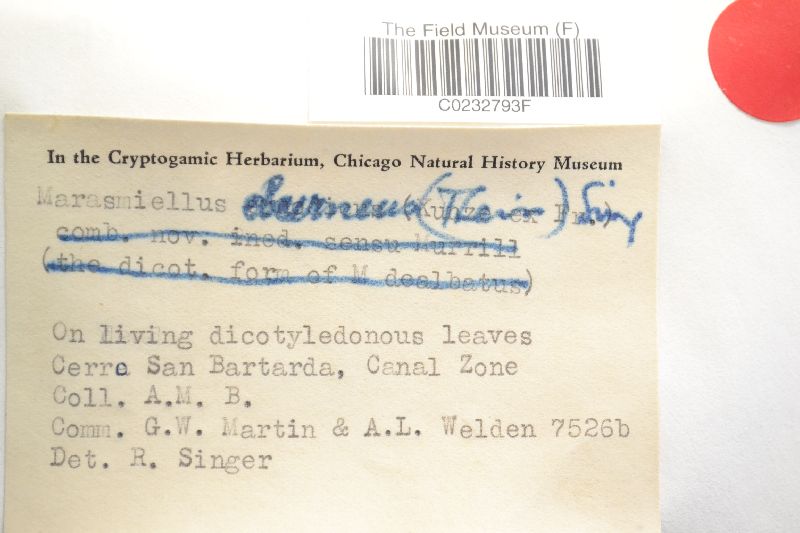 The Field Museum (F)
C0232793F
In the Cryptogamic Herbarium, Chicago Natural History Museum
Marasmiellus eburneus (Theiss) Sing
comb. nov. ined. sensu Murrill
(the dicot. form of M dealbatus)
On living dicotyledonous leaves
Cerro San Bartarda, Canal Zone
Coll. A.M. B.
Comm. G.W. Martin & A.L. Welden 7526b
Det. R. Singer